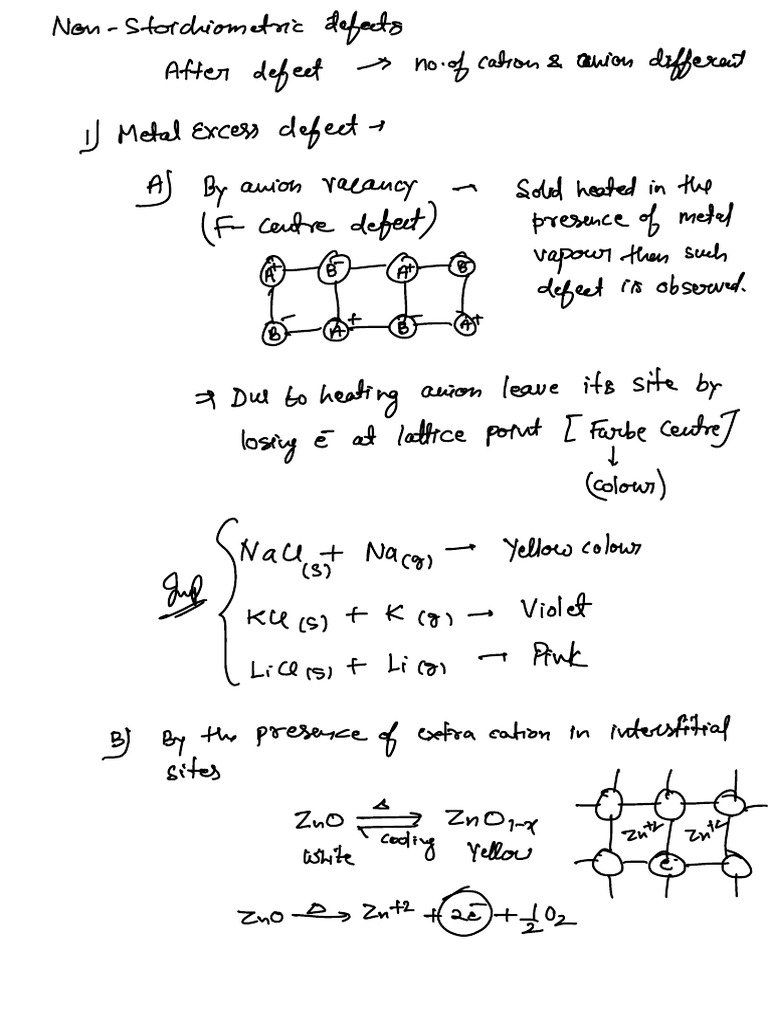 Non-Stoichiometric defects
After defect → no. of cation & anion different
1) Metal Excess defect →
A) By anion vacancy — Solid heated in the
(F- centre defect) presence of metal
vapour then such
defect is observed.
A+ B- A+ B-
B- A+ B- A+
⇒ Due to heating anion leave its site by
losing e⁻ at lattice point [Farbe Centre]
↓
(colour)
NaCl(s) + Na(g) → Yellow colour
Imp
KCl(s) + K(g) → Violet
LiCl(s) + Li(g) → Pink
B) By the presence of extra cation in interstitial
sites
ZnO Δ ⇌ cooling ZnO1-x
White Yellow
Zn+2 Zn+2
e-
ZnO Δ→ Zn+2 + 2e⁻ + 1/2 O2